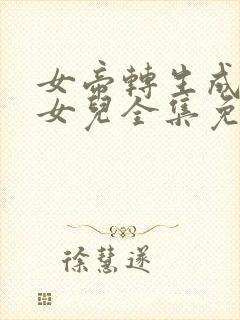 女帝轉生成
女兒全集免
徐慧遂